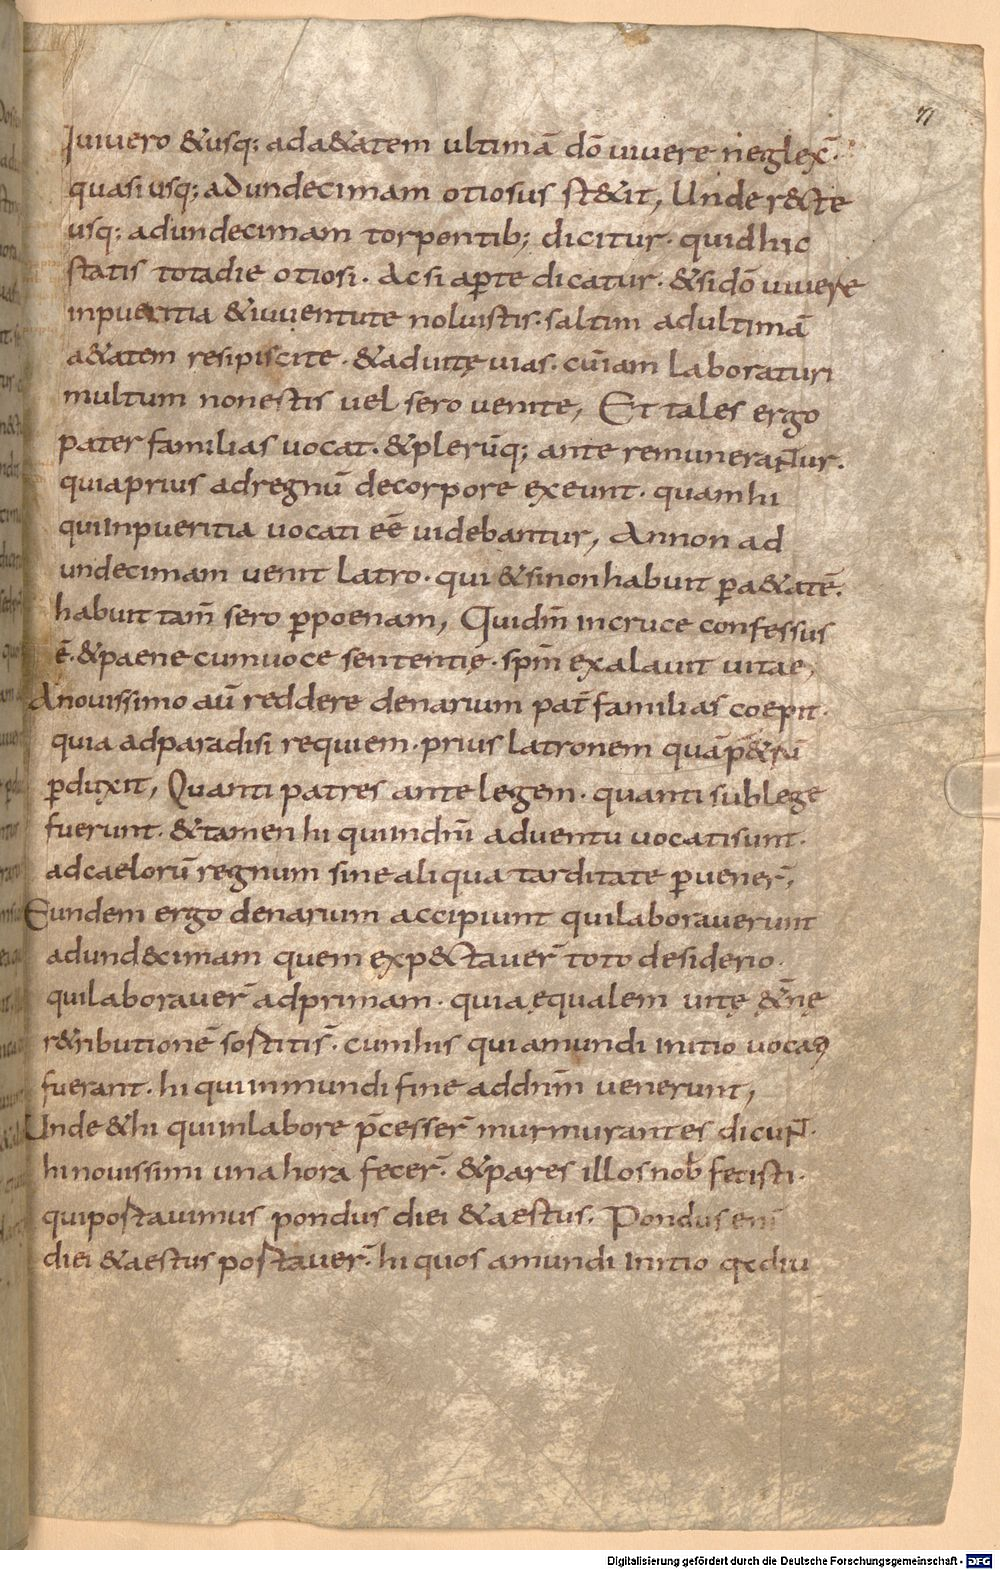 71
Iuiuero &usq; ada&atem ultimā dō uiuere neglex̄.
quasi usq; adundecimam otiosus st&it, Unde r&cte
usq; adundecimam torpentib; dicitur. quid hic
statis tota die otiosi. Ac si aꝑte dicatur. & si dō uiuere
inpueritia &iuuentute noluistis. saltim adultimā
a&atem resipiscite. &aduitę uias. cūiam laboraturi
multum nonestis uel sero uenite, Et tales ergo
pater familias uocat. &plerūq; ante remunerantur.
quiaprius adregnū decorpore exeunt. quam hi
quiinpueritia uocati eē uidebantur, Annon ad
undecimam uenit Latro. qui &sinonhabuit ꝑa&atē.
habuit tam̄ sero ꝑpoenam, Quidm̄ incruce confessus
ē. &paene cumuoce sententię. spm̄ exalauit uitae,
Anouissimo aū reddere denarium pat̄ familias coepit.
quia adparadisi requiem. prius latronem quāp&rū
ꝑduxit, Quanti patres ante legem. quanti sub lege
fuerunt. &tamen hi quiindn̄i aduentu uocatisunt.
adcaelorū regnum sine aliqua tarditate ꝑuener̄,
Eundem ergo denarium accipiunt quilaborauerunt
adundecimam quem exp&ctauer̄ toto desiderio.
quilaborauer̄ adprimam. quia ęqualem uitę &n̄ę
r&ributionē sostitis̄. cumhis qui amundi initio uocaꝯ
fuerant. hi quiinmundi fine addnm̄ uenerunt,
Unde &hi quiinlabore p̄cesser̄ murmurantes dicunt.
hinouissimi una hora fecer̄. &pares illos nob̄ fecisti.
quipostauimus pondus diei &aestus. Pondus eni
diei &aestus postauer̄. hi quos amundi initio qꝛdiu
Digitalisierung gefördert durch die Deutsche Forschungsgemeinschaft - DFG